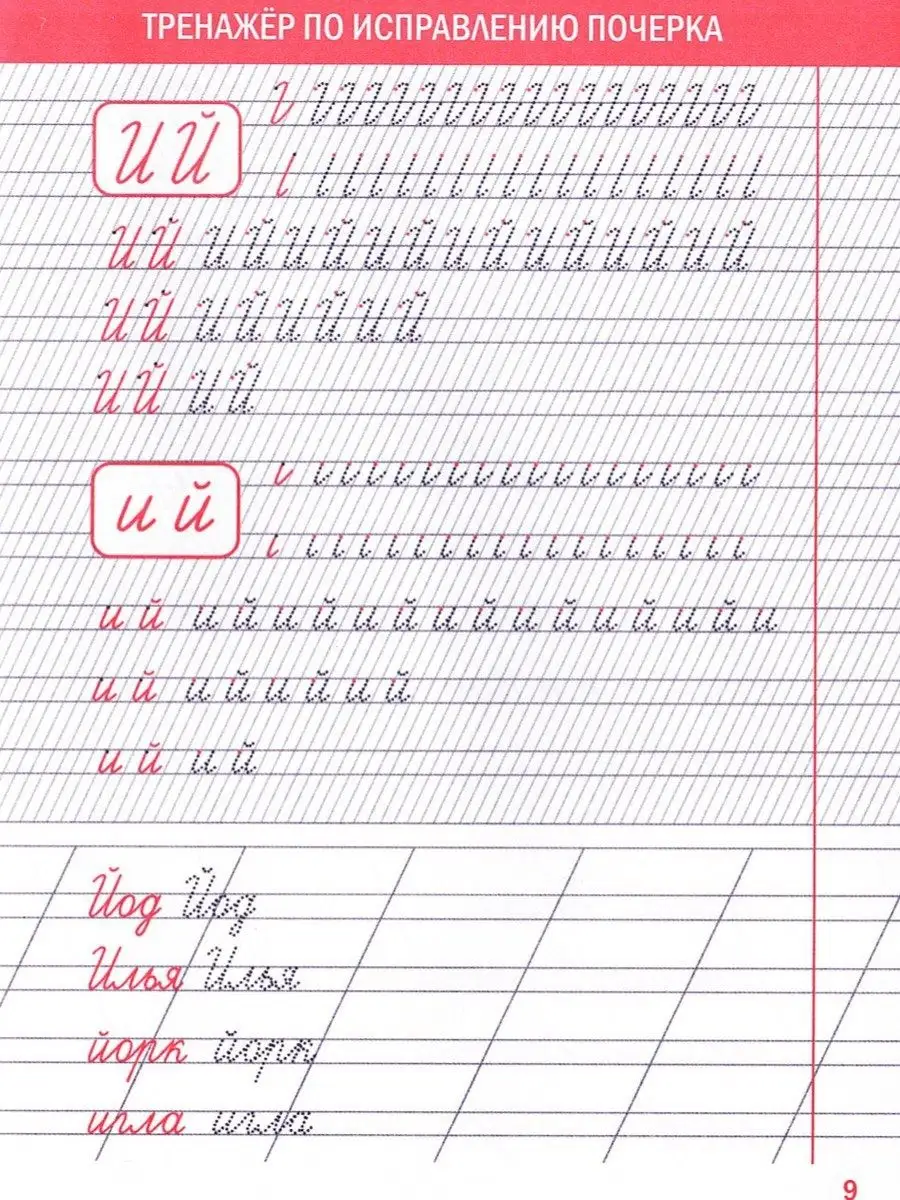 ТРЕНАЖЁР ПО ИСПРАВЛЕНИЮ ПОЧЕРКА
И Й
И Й И Й И Й И Й И Й И Й И Й И Й
И Й И Й И Й И Й
И Й И Й
и й
и й и й и й и й и й и й и й и й и
и й и й и й и й
и й и й
Йод Йод
Илья Илья
йорк йорк
игла игла
9